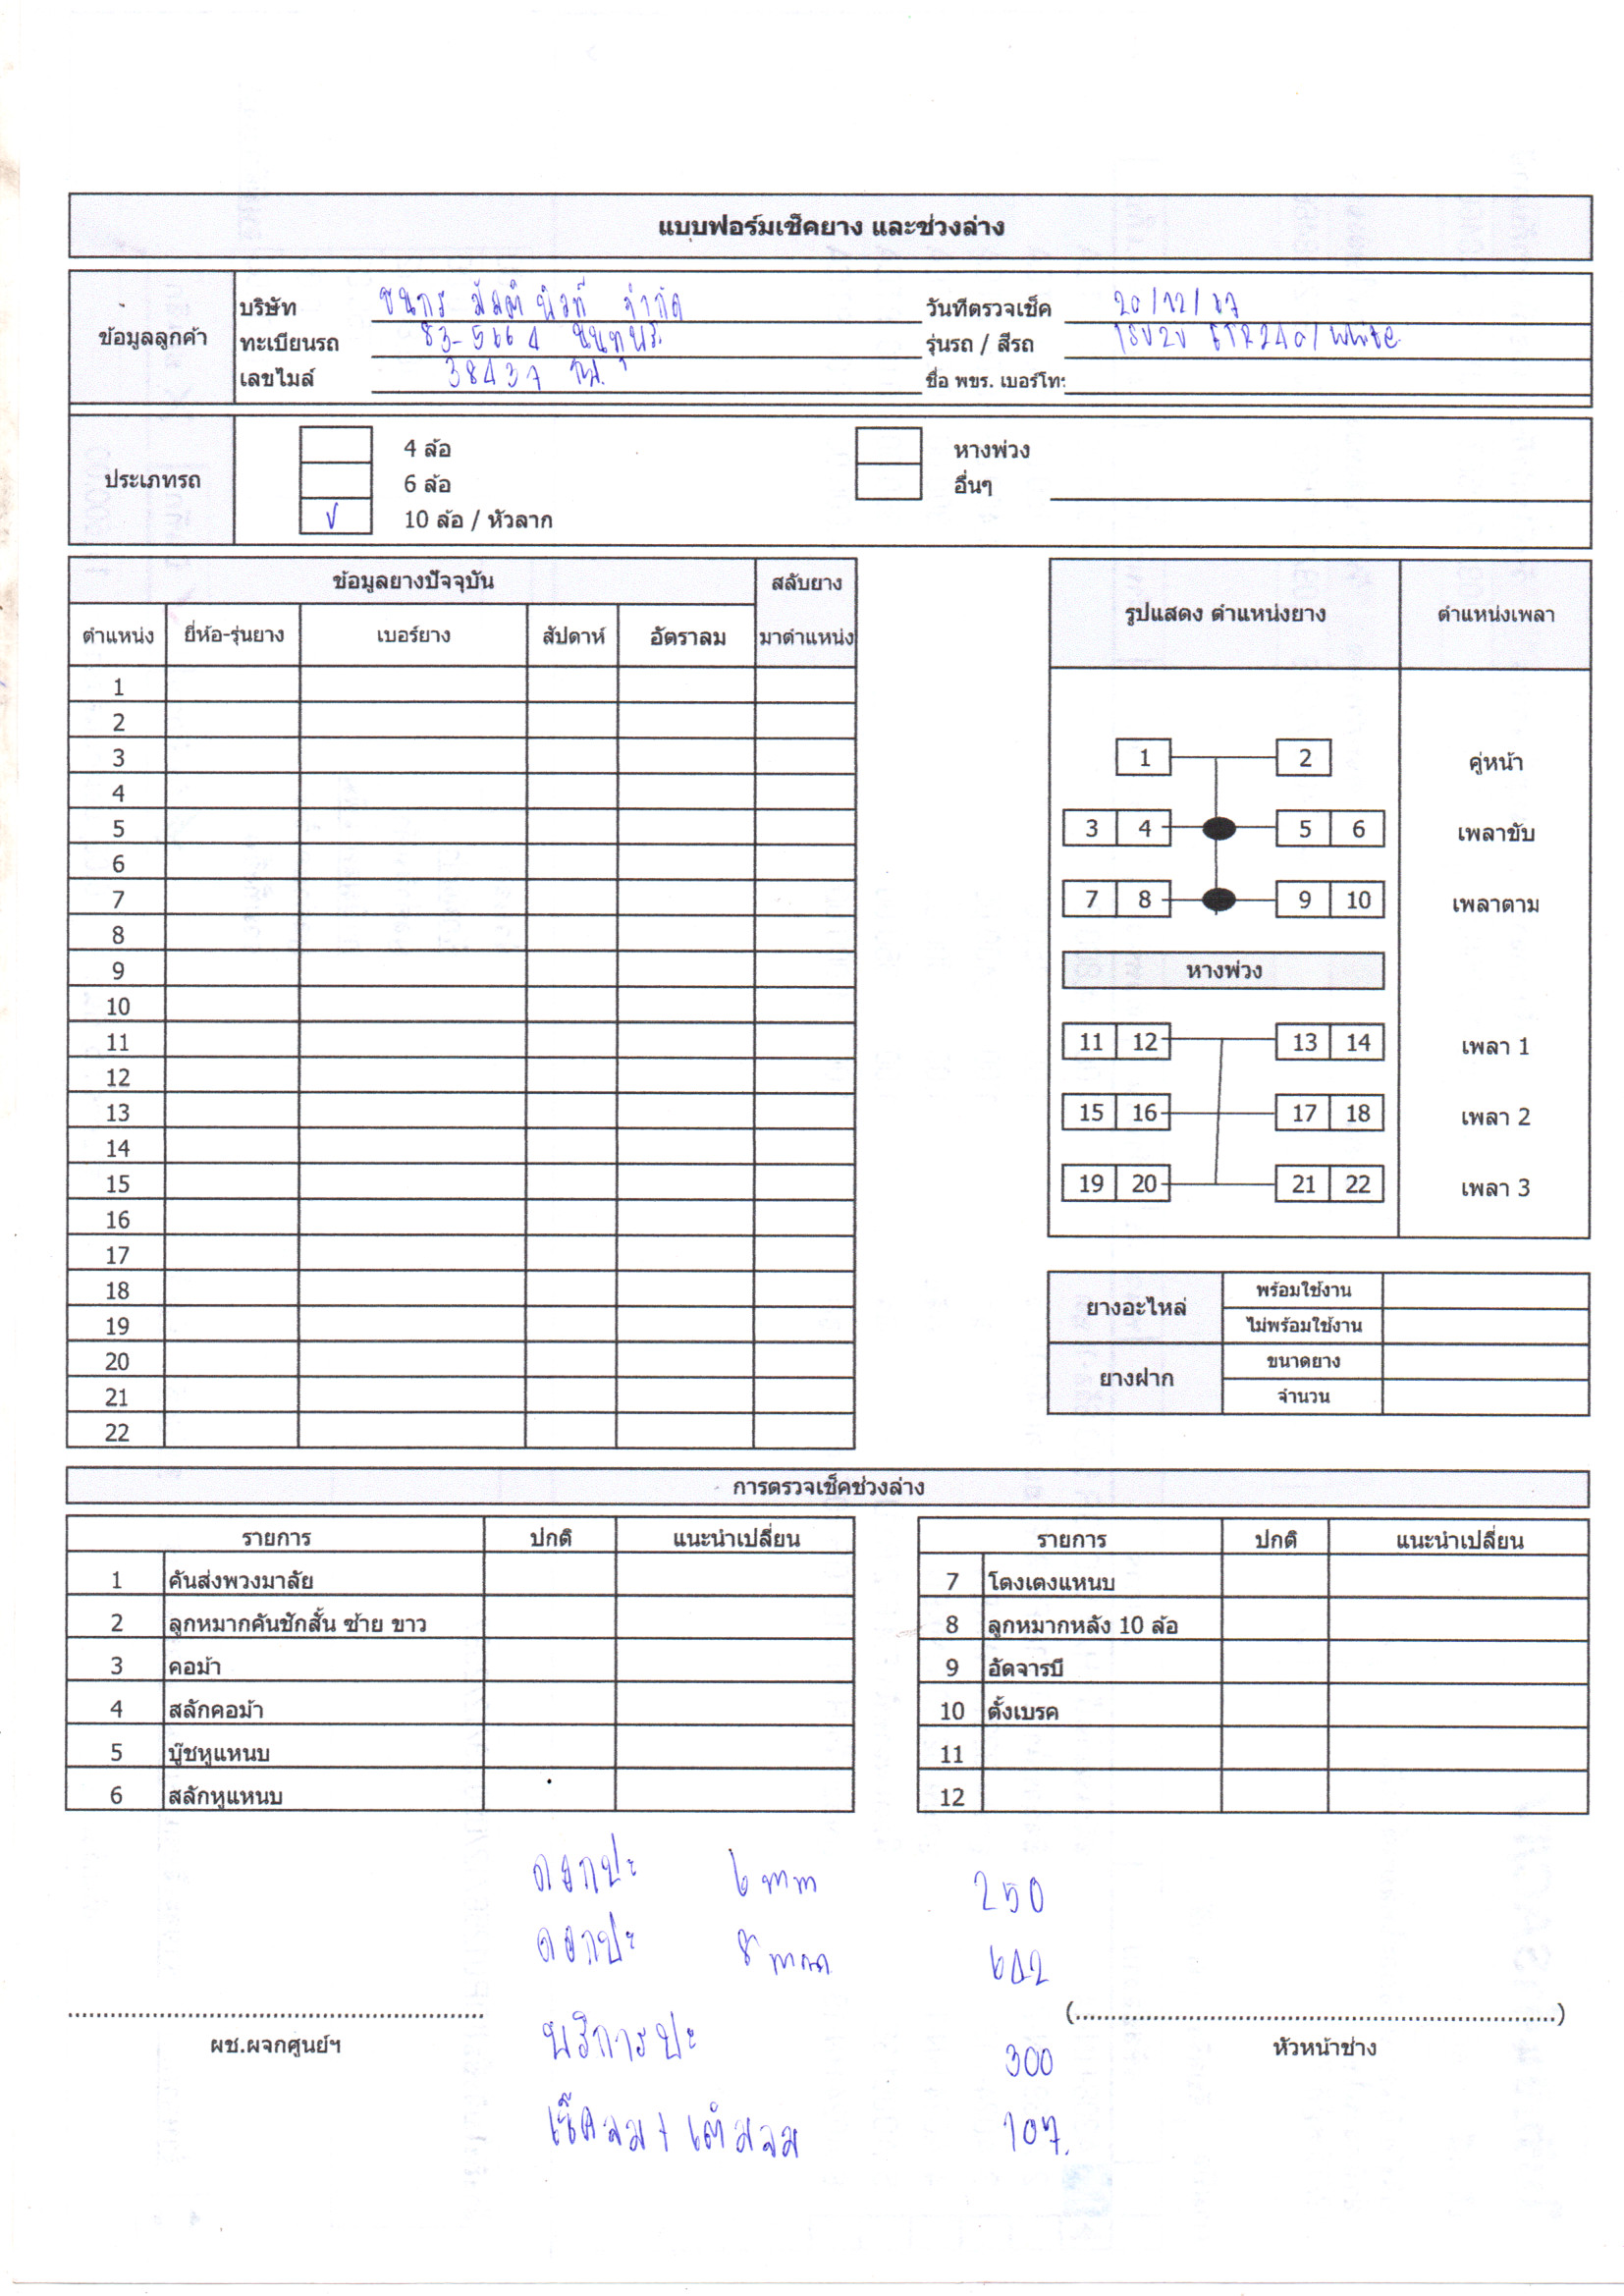 แบบฟอร์มเช็คยาง และช่วงล่าง
ข้อมูลลูกค้า
บริษัท ธนกร มัลติ จำกัด
ทะเบียนรถ 83-5664 นนทบุรี
เลขไมล์ 38437 กม.
วันที่ตรวจเช็ค 20/12/67
รุ่นรถ / สีรถ ISUZU / White
ชื่อ พขร. เบอร์โทร
ประเภทรถ
4 ล้อ
6 ล้อ
✓ 10 ล้อ / หัวลาก
หางพ่วง
อื่นๆ
ข้อมูลยางปัจจุบัน สลับยาง
ตำแหน่ง ยี่ห้อ-รุ่นยาง เบอร์ยาง สัปดาห์ อัตราลม มาตำแหน่ง
1
2
3
4
5
6
7
8
9
10
11
12
13
14
15
16
17
18
19
20
21
22
รูปแสดง ตำแหน่งยาง ตำแหน่งเพลา
1 2 คู่หน้า
3 4 5 6 เพลาขับ
7 8 9 10 เพลาตาม
หางพ่วง
11 12 13 14 เพลา 1
15 16 17 18 เพลา 2
19 20 21 22 เพลา 3
ยางอะไหล่ พร้อมใช้งาน
ไม่พร้อมใช้งาน
ยางฝาก ขนาดยาง
จำนวน
การตรวจเช็คช่วงล่าง
รายการ ปกติ แนะนำเปลี่ยน
1 คันส่งพวงมาลัย
2 ลูกหมากคันชักสั้น ซ้าย ขาว
3 คอม้า
4 สลักคอม้า
5 บู๊ชหูแหนบ
6 สลักหูแหนบ
รายการ ปกติ แนะนำเปลี่ยน
7 โตงเตงแหนบ
8 ลูกหมากหลัง 10 ล้อ
9 อัดจารบี
10 ตั้งเบรค
11
12
ดอกปะ 6 mm 250
ดอกปะ 8 mm 642
บริการปะ 300
เช็คลม + เติมลม 107.
ผช.ผจกศูนย์ฯ
(....................)
หัวหน้าช่าง